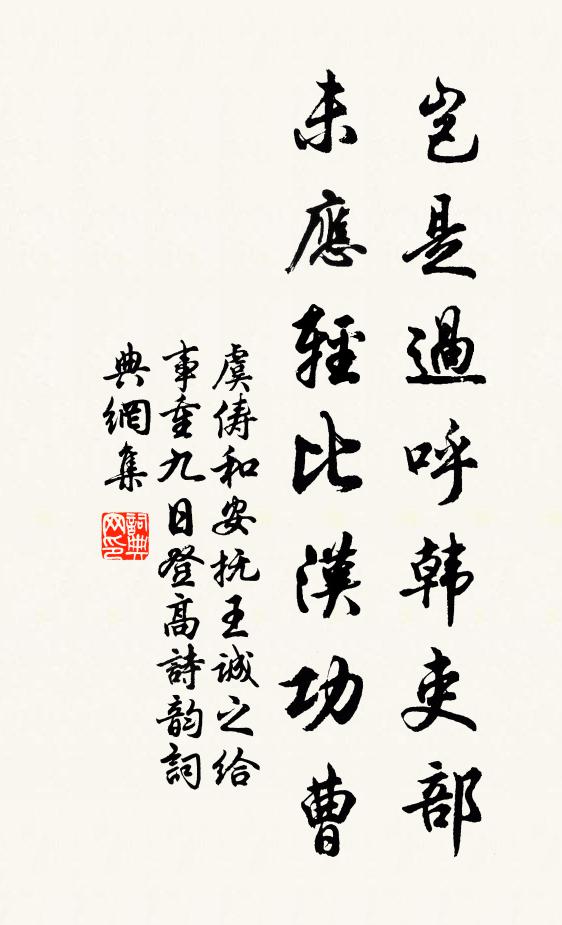 豈是過呼韩吏部
未應輕比漢功曹
虞俦和安抚王诚之给
事重九日登高詩韵詞
典網集
詞典
网印